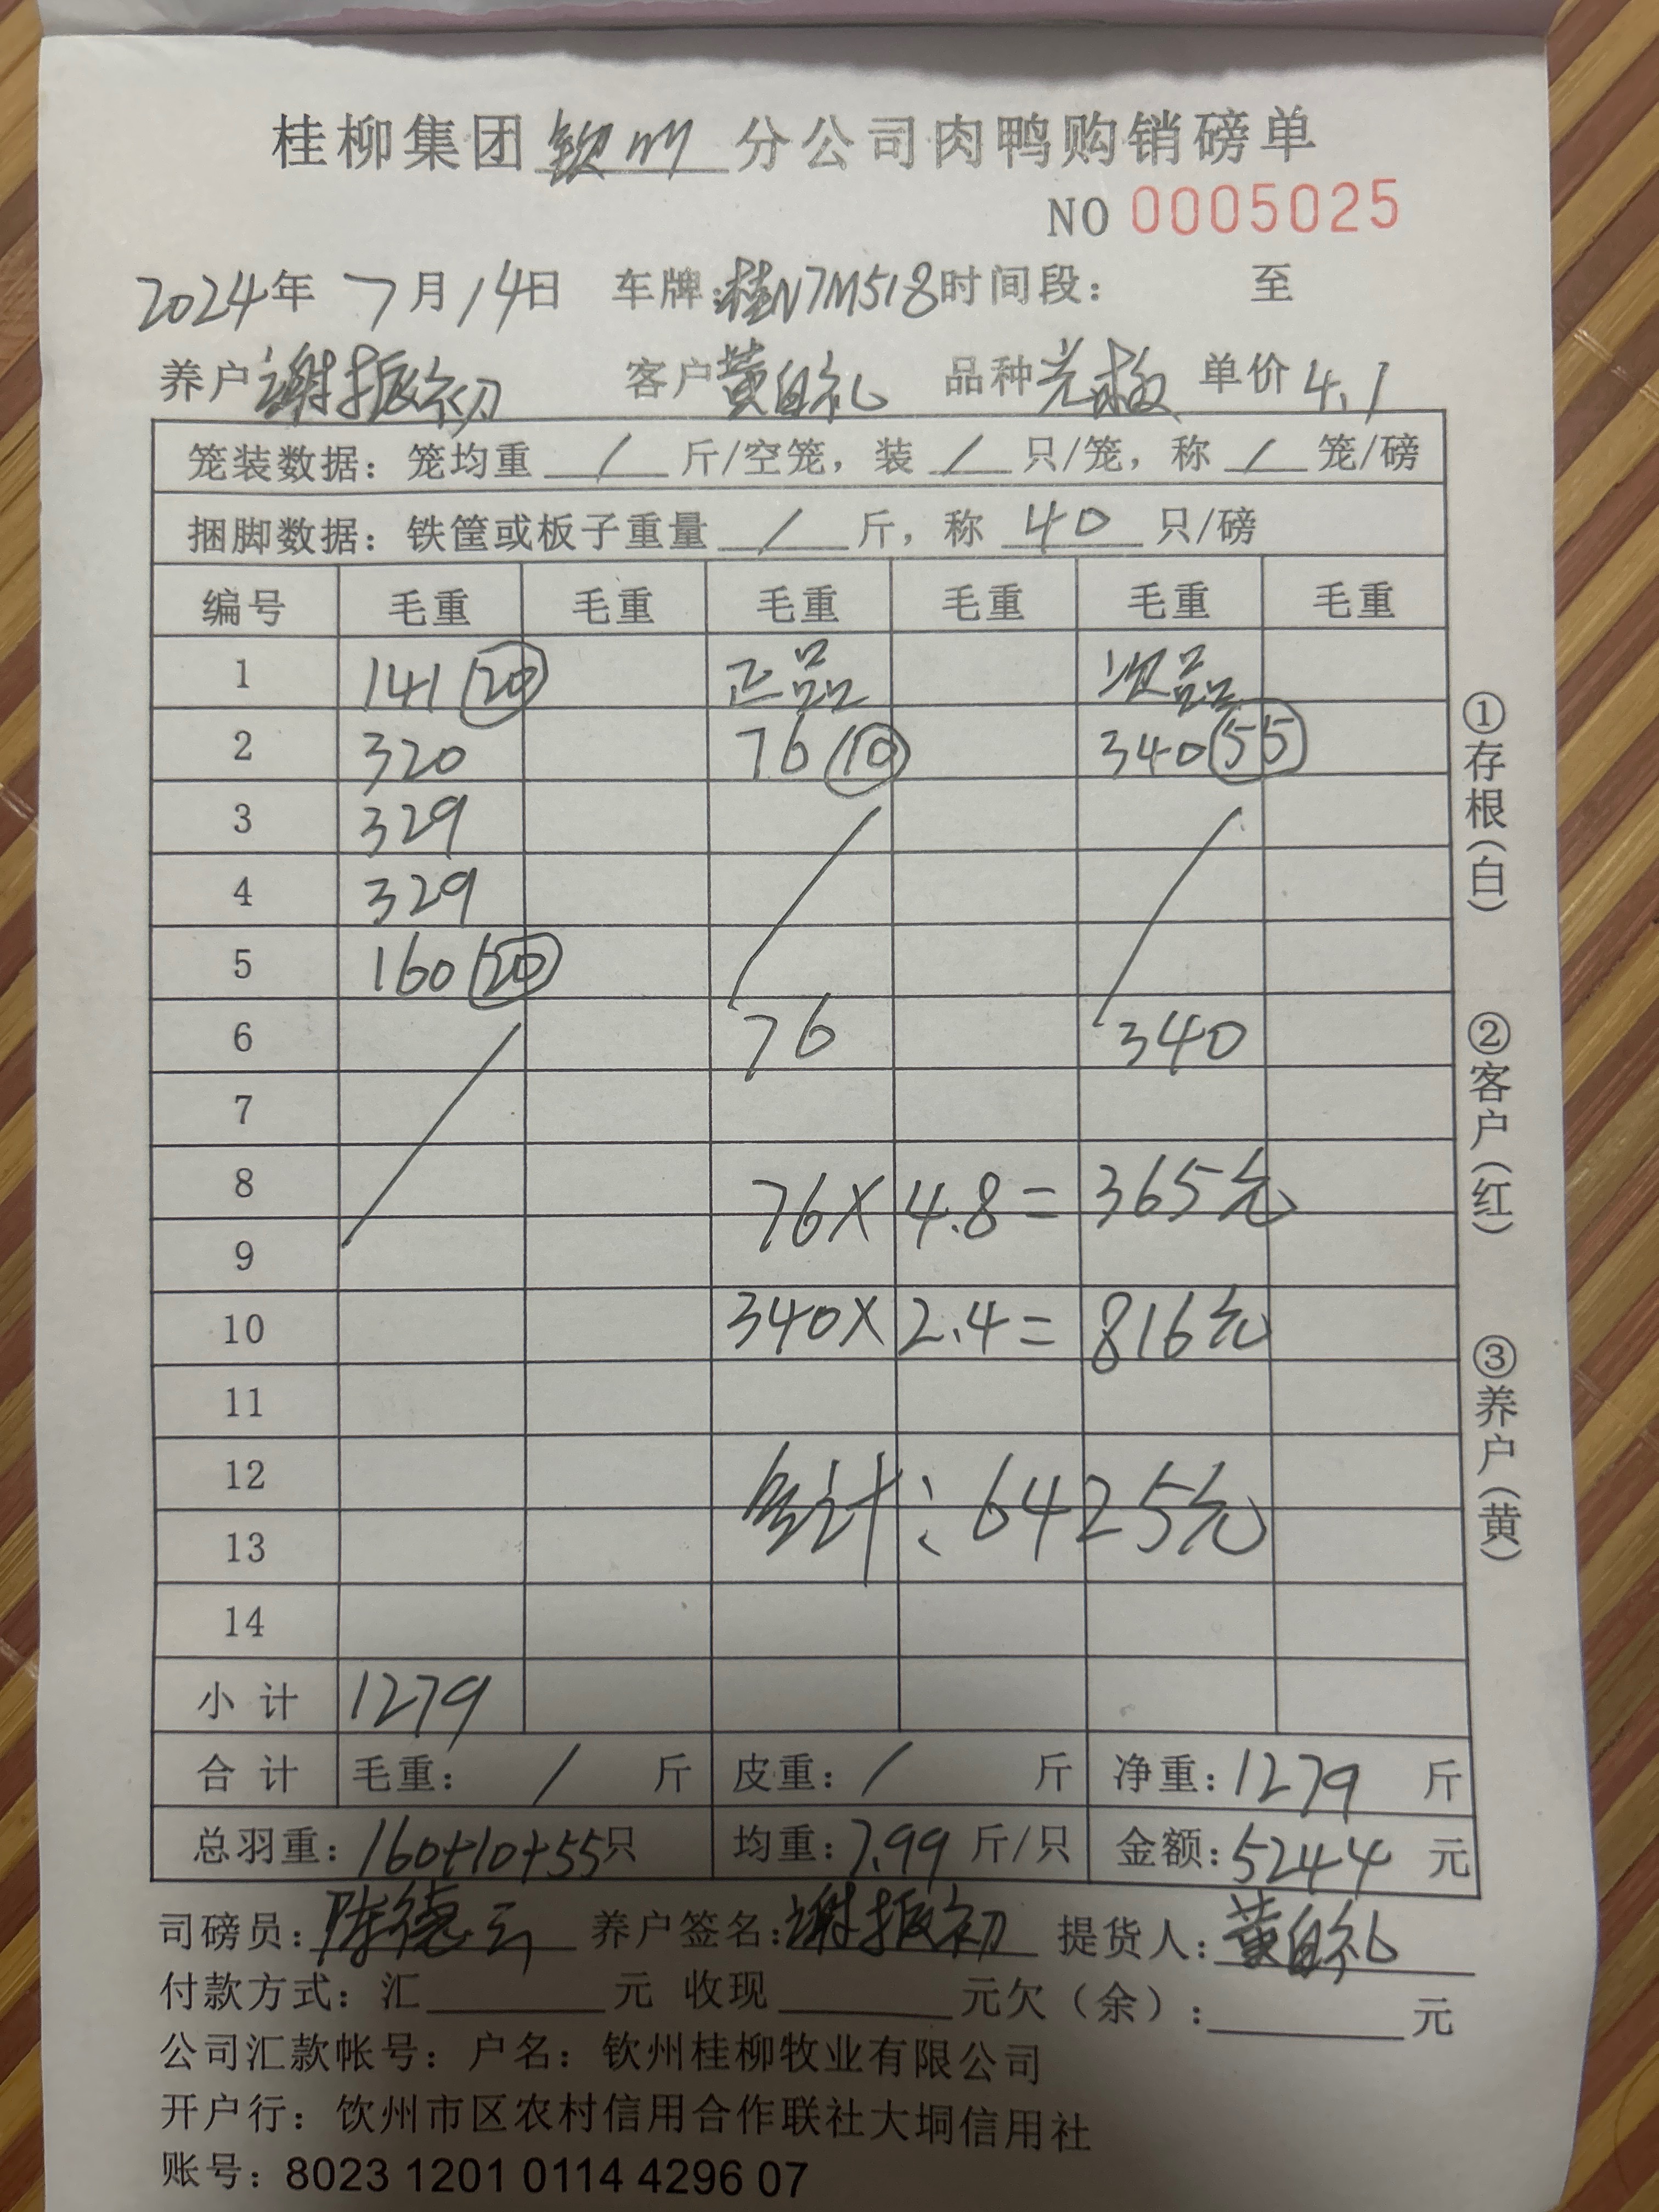 桂柳集团钦州分公司肉鸭购销磅单
NO 0005025
2024年 7月14日 车牌:桂N7M518 时间段: 至
养户谢振初 客户黄自礼 品种 单价4.1
笼装数据: 笼均重 / 斤/空笼, 装 / 只/笼, 称 / 笼/磅
捆脚数据: 铁筐或板子重量 / 斤, 称 40 只/磅
编号 毛重 毛重 毛重 毛重 毛重 毛重
1 141 (20) 正品 次品
2 320 76 (10) 340 (55)
3 329
4 329
5 160 (20)
6 76 340
7
8 76×4.8=365元
9
10 340×2.4=816元
11
12 合计:6425元
13
14
小计 1279
合计 毛重: / 斤 皮重: / 斤 净重:1279 斤
总羽重:160+10+55只 均重:7.99 斤/只 金额:5244 元
司磅员:陈德云 养户签名:谢振初 提货人:黄自礼
付款方式: 汇 元 收现 元欠(余): 元
公司汇款帐号: 户名: 钦州桂柳牧业有限公司
开户行: 钦州市区农村信用合作联社大垌信用社
账号: 8023 1201 0114 4296 07
①存根(白)
②客户(红)
③养户(黄)